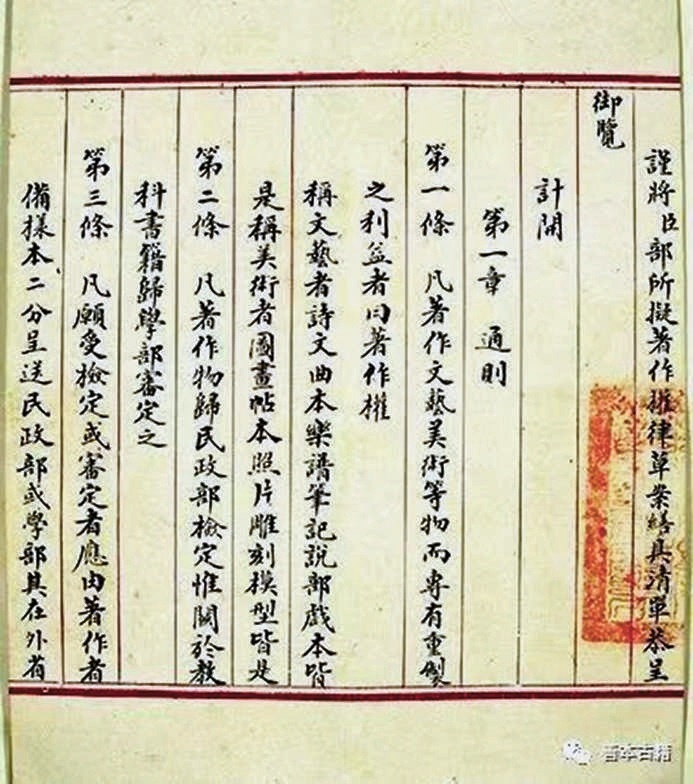 謹將臣部所擬著作權律草案繕具清單恭呈
御覽
計開
第一章 通則
第一條 凡著作文藝美術等物而專有重製
之利益者曰著作權
稱文藝者詩文曲本樂譜筆記說部戲本皆
是稱美術者圖畫帖本照片雕刻模型皆是
第二條 凡著作物歸民政部檢定惟關於教
科書籍歸學部審定之
第三條 凡願受檢定或審定者應由著作者
備樣本二分呈送民政部或學部其在外省
書本古籍